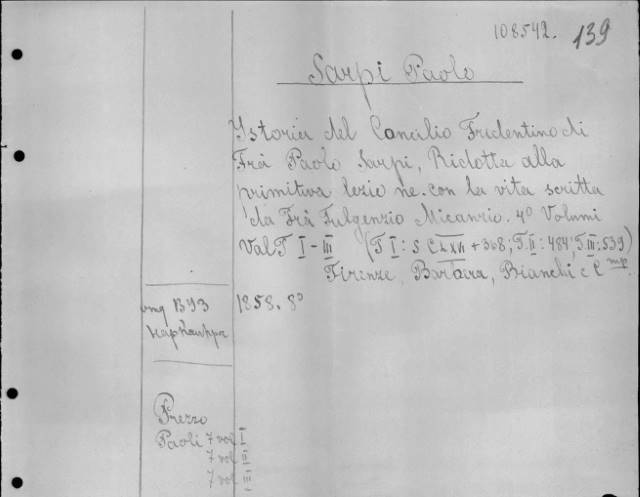 108542. 139
Sarpi Paolo
Istoria del Concilio Tridentino di
Frà Paolo Sarpi, Ridotta alla
primitiva lezio ne con la vita scritta
da Frà Fulgenzio Micanzio. 4º Volumi
Vol T I-III (T I: s CLXXVI + 368; T. II: 484; T. III: 539)
Firenze, Barbèra, Bianchi e C mp.
1858. 8º
B93
Prezzo
Paoli 7 vol I
7 vol II
7 vol III